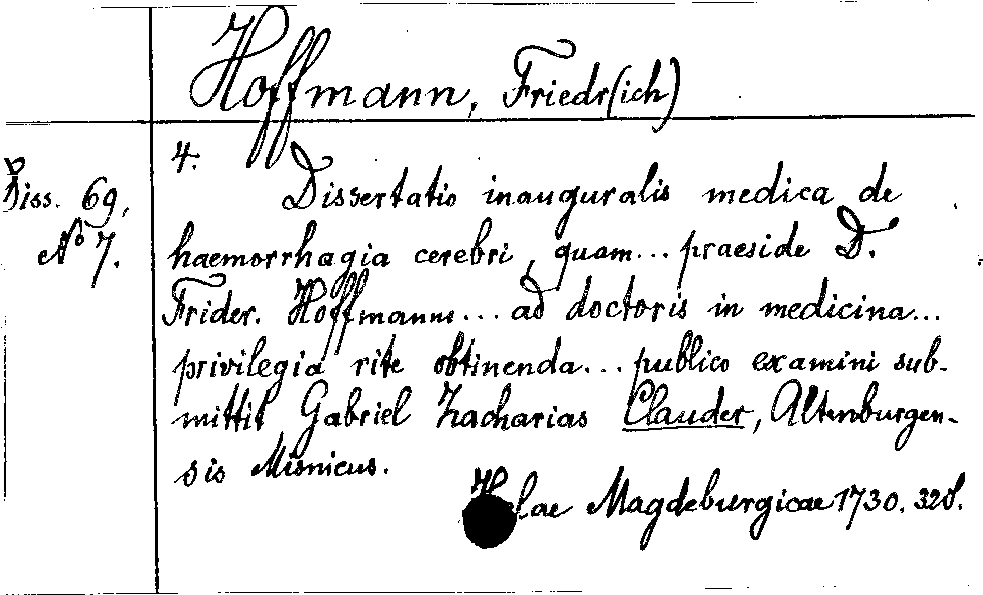 Hoffmann, Friedr(ich)
Diss. 69,
No 7.
4.
Dissertatio inauguralis medica de
haemorrhagia cerebri, quam... praeside D.
Frider. Hoffmanno... ad doctoris in medicina...
privilegia rite obtinenda... publico examini sub-
mittit Gabriel Zacharias Clauder, Altenburgen-
sis Misnicus.
Halae Magdeburgicae 1730. 32 S.